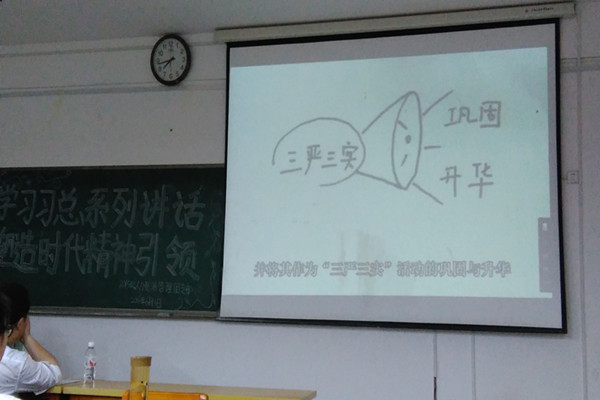 学习习总系列讲话
塑造时代精神引领
三严三实
巩固
升华
并将其作为“三严三实”活动的巩固与升华